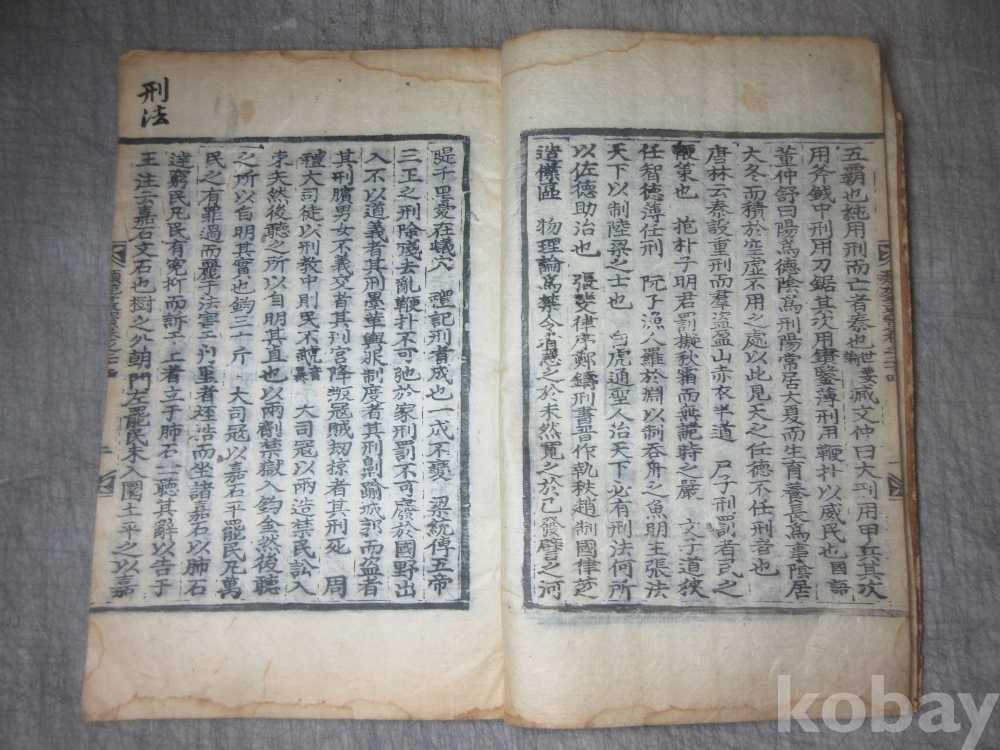 五覇也純用刑而亡者秦也世要論臧文仲曰大刑用甲兵其次
用斧鉞中刑用刀鋸其次用鑽鑿薄刑用鞭扑以威民也國語
董仲舒曰陽爲德陰爲刑陽常居大夏而生育養長爲事陰居
大冬而積於空虛不用之處以此見天之任德不任刑者也
唐林云秦設重刑而羣盜盈山赤衣半道 尸子刑罰者民之
鞭策也 抱朴子明君罰擬秋霜而無詭時之嚴 文子道狹
任智德薄任刑 阮子漁人羅於淵以制吞舟之魚明王張法
天下以制陸梁之士也 白虎通聖人治天下必有刑法何所
以佐德助治也 張斐律序鄭鑄刑書晋作執秩趙制國律楚
造僕區 物理論爲禁令消慝之於未然寃之於已發譬之河
堤千里憂在蟻穴 禮記刑者成也一成不變 梁統傳五帝
三王之刑除殘去亂鞭扑不可弛於家刑罰不可廢於國野出
入不以道義者其刑墨革輿服制度者其刑劓踰城郭而盜者
其刑臏男女不義交者其刑宮降叛冠賊刼掠者其刑死 周
禮大司徒以刑教中則民不虣音暴 大司冠以兩造禁民訟入
束矢然後聽之所以自明其直也以兩劑禁獄入鈞金然後聽
之所以自明其實也鈞三十斤 大司冠以嘉石平罷民凡萬
民之有罪過而麗乎法害于州里者桎浩而坐諸嘉石以肺石
達窮民凡民有免抑而訴于上者立于肺石一聽其辭以告于
王注云嘉石文石也樹之外朝門左罷民未入圜土平之以嘉
刑法
kobay